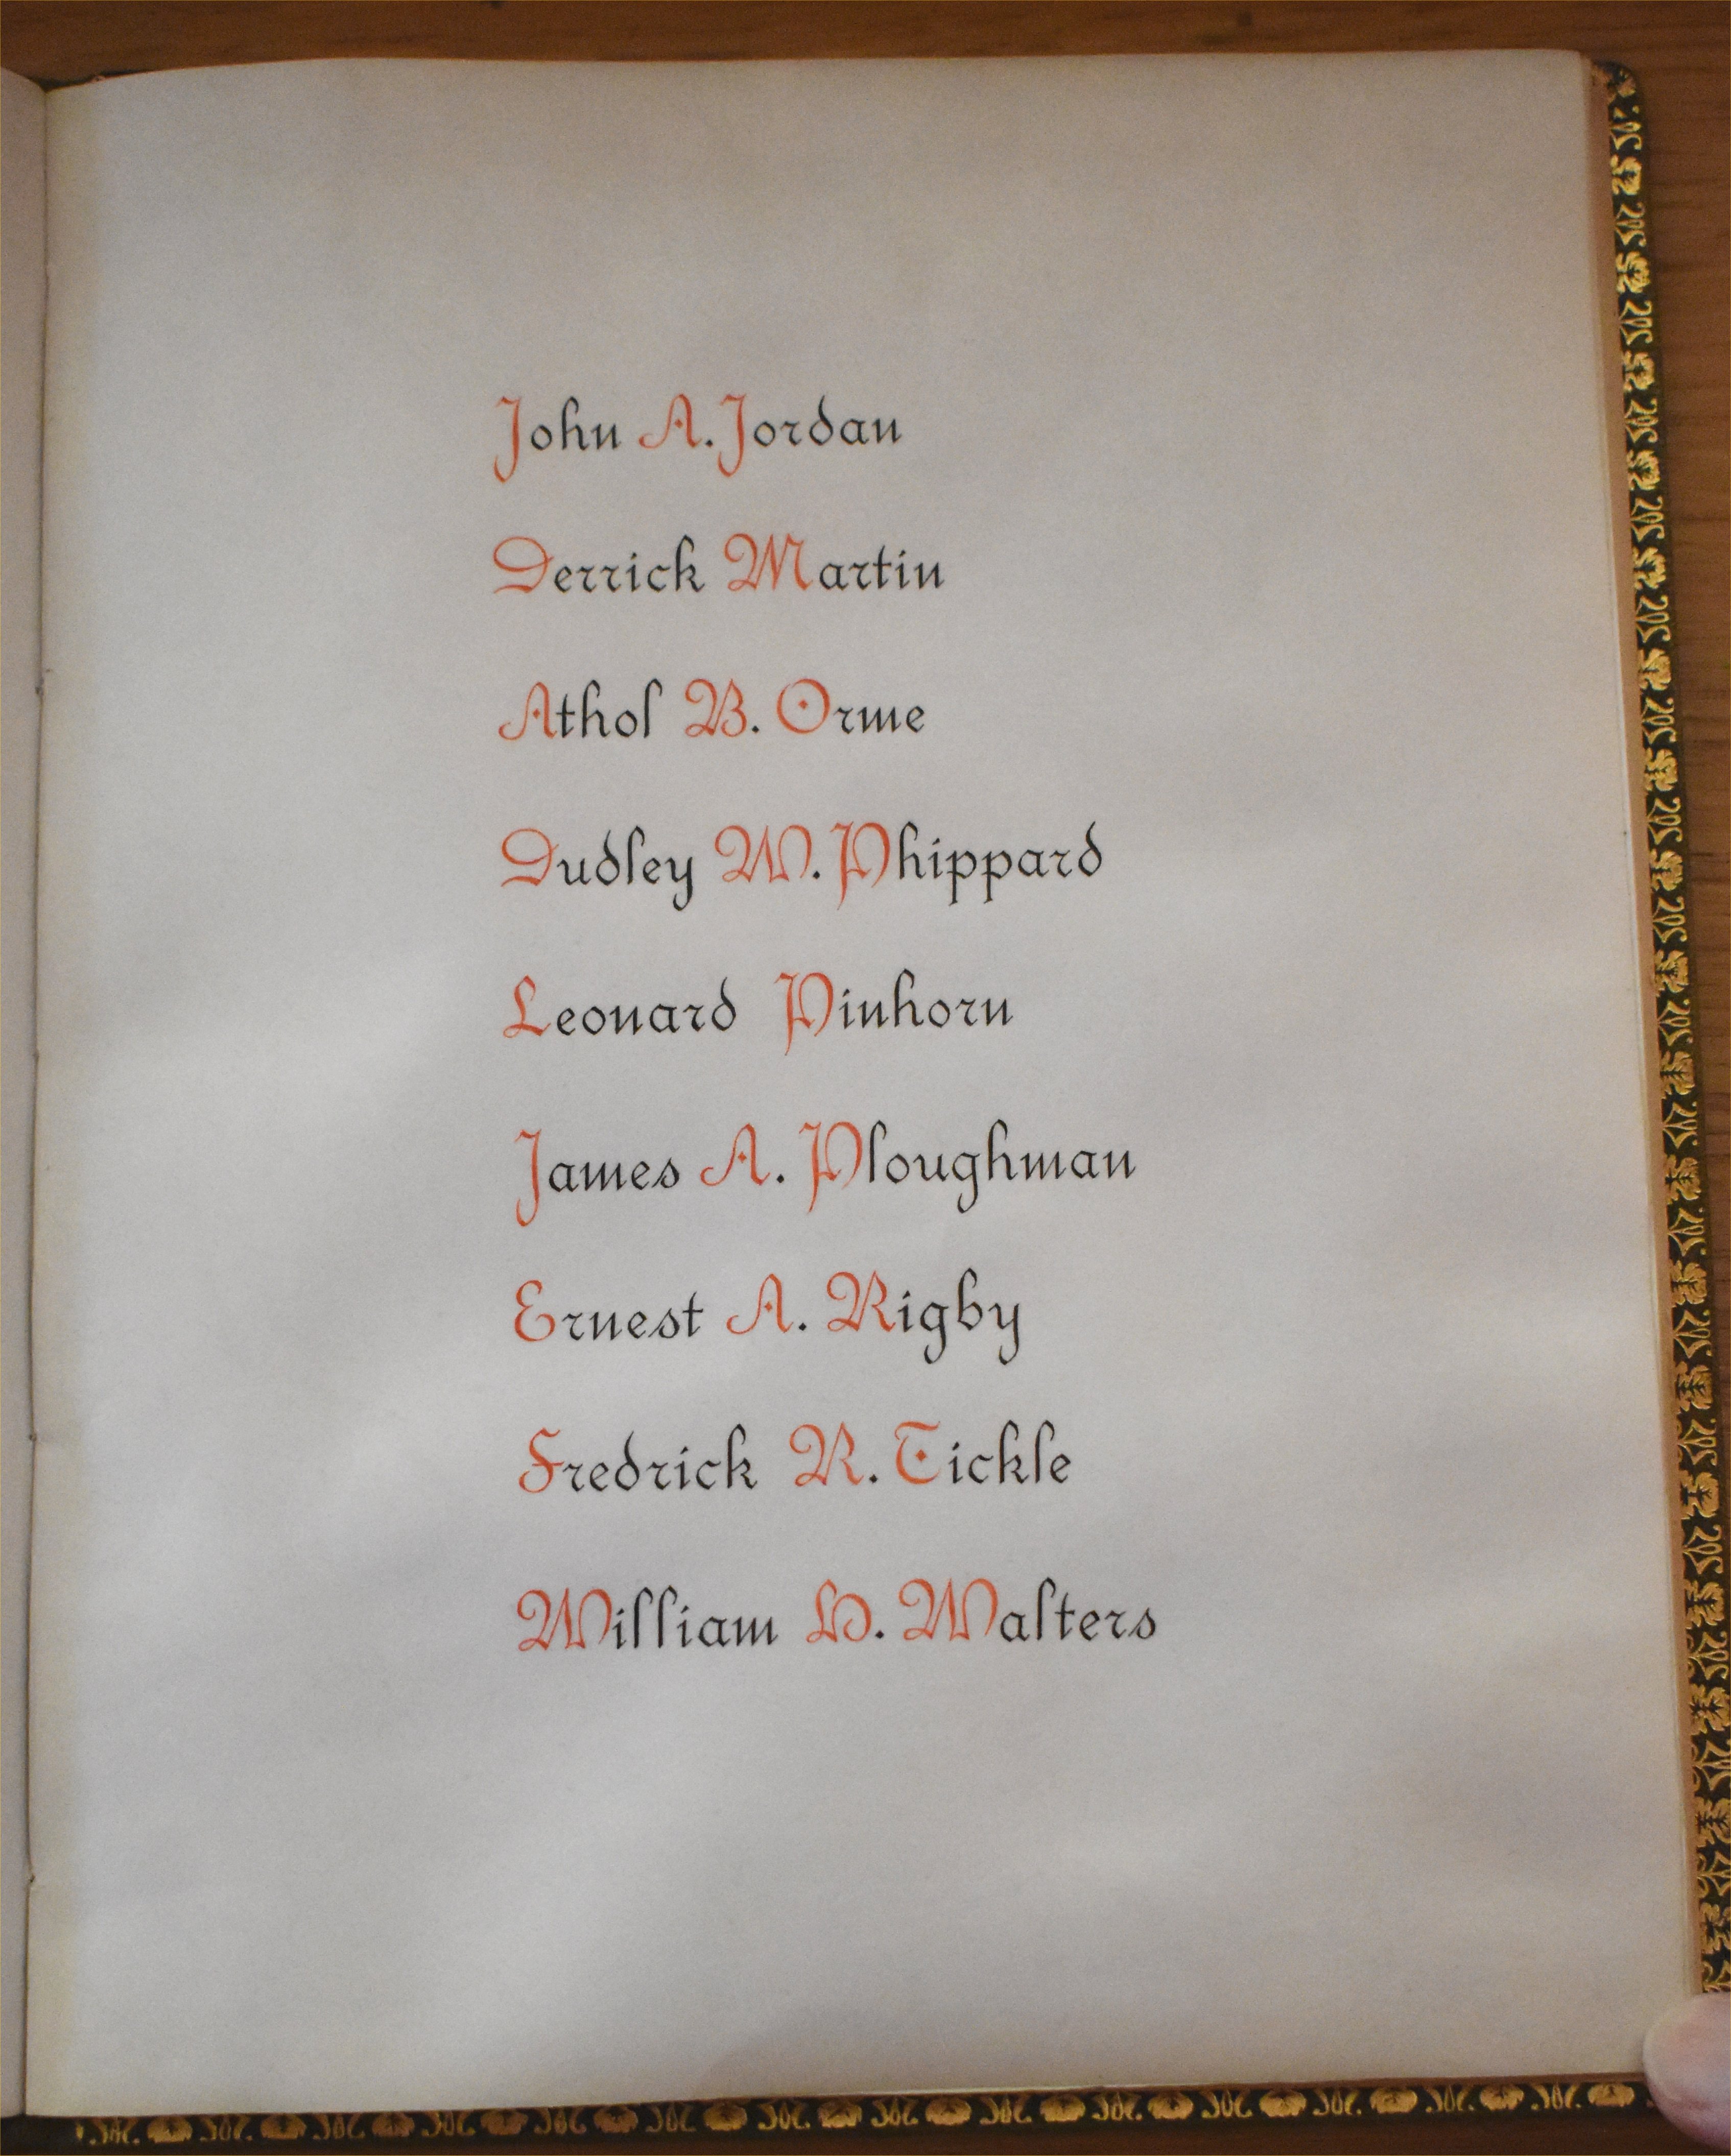 John A. Jordan
Derrick Martin
Athol B. Orme
Dudley W. Phippard
Leonard Pinhorn
James A. Ploughman
Ernest A. Rigby
Fredrick R. Tickle
William H. Walters